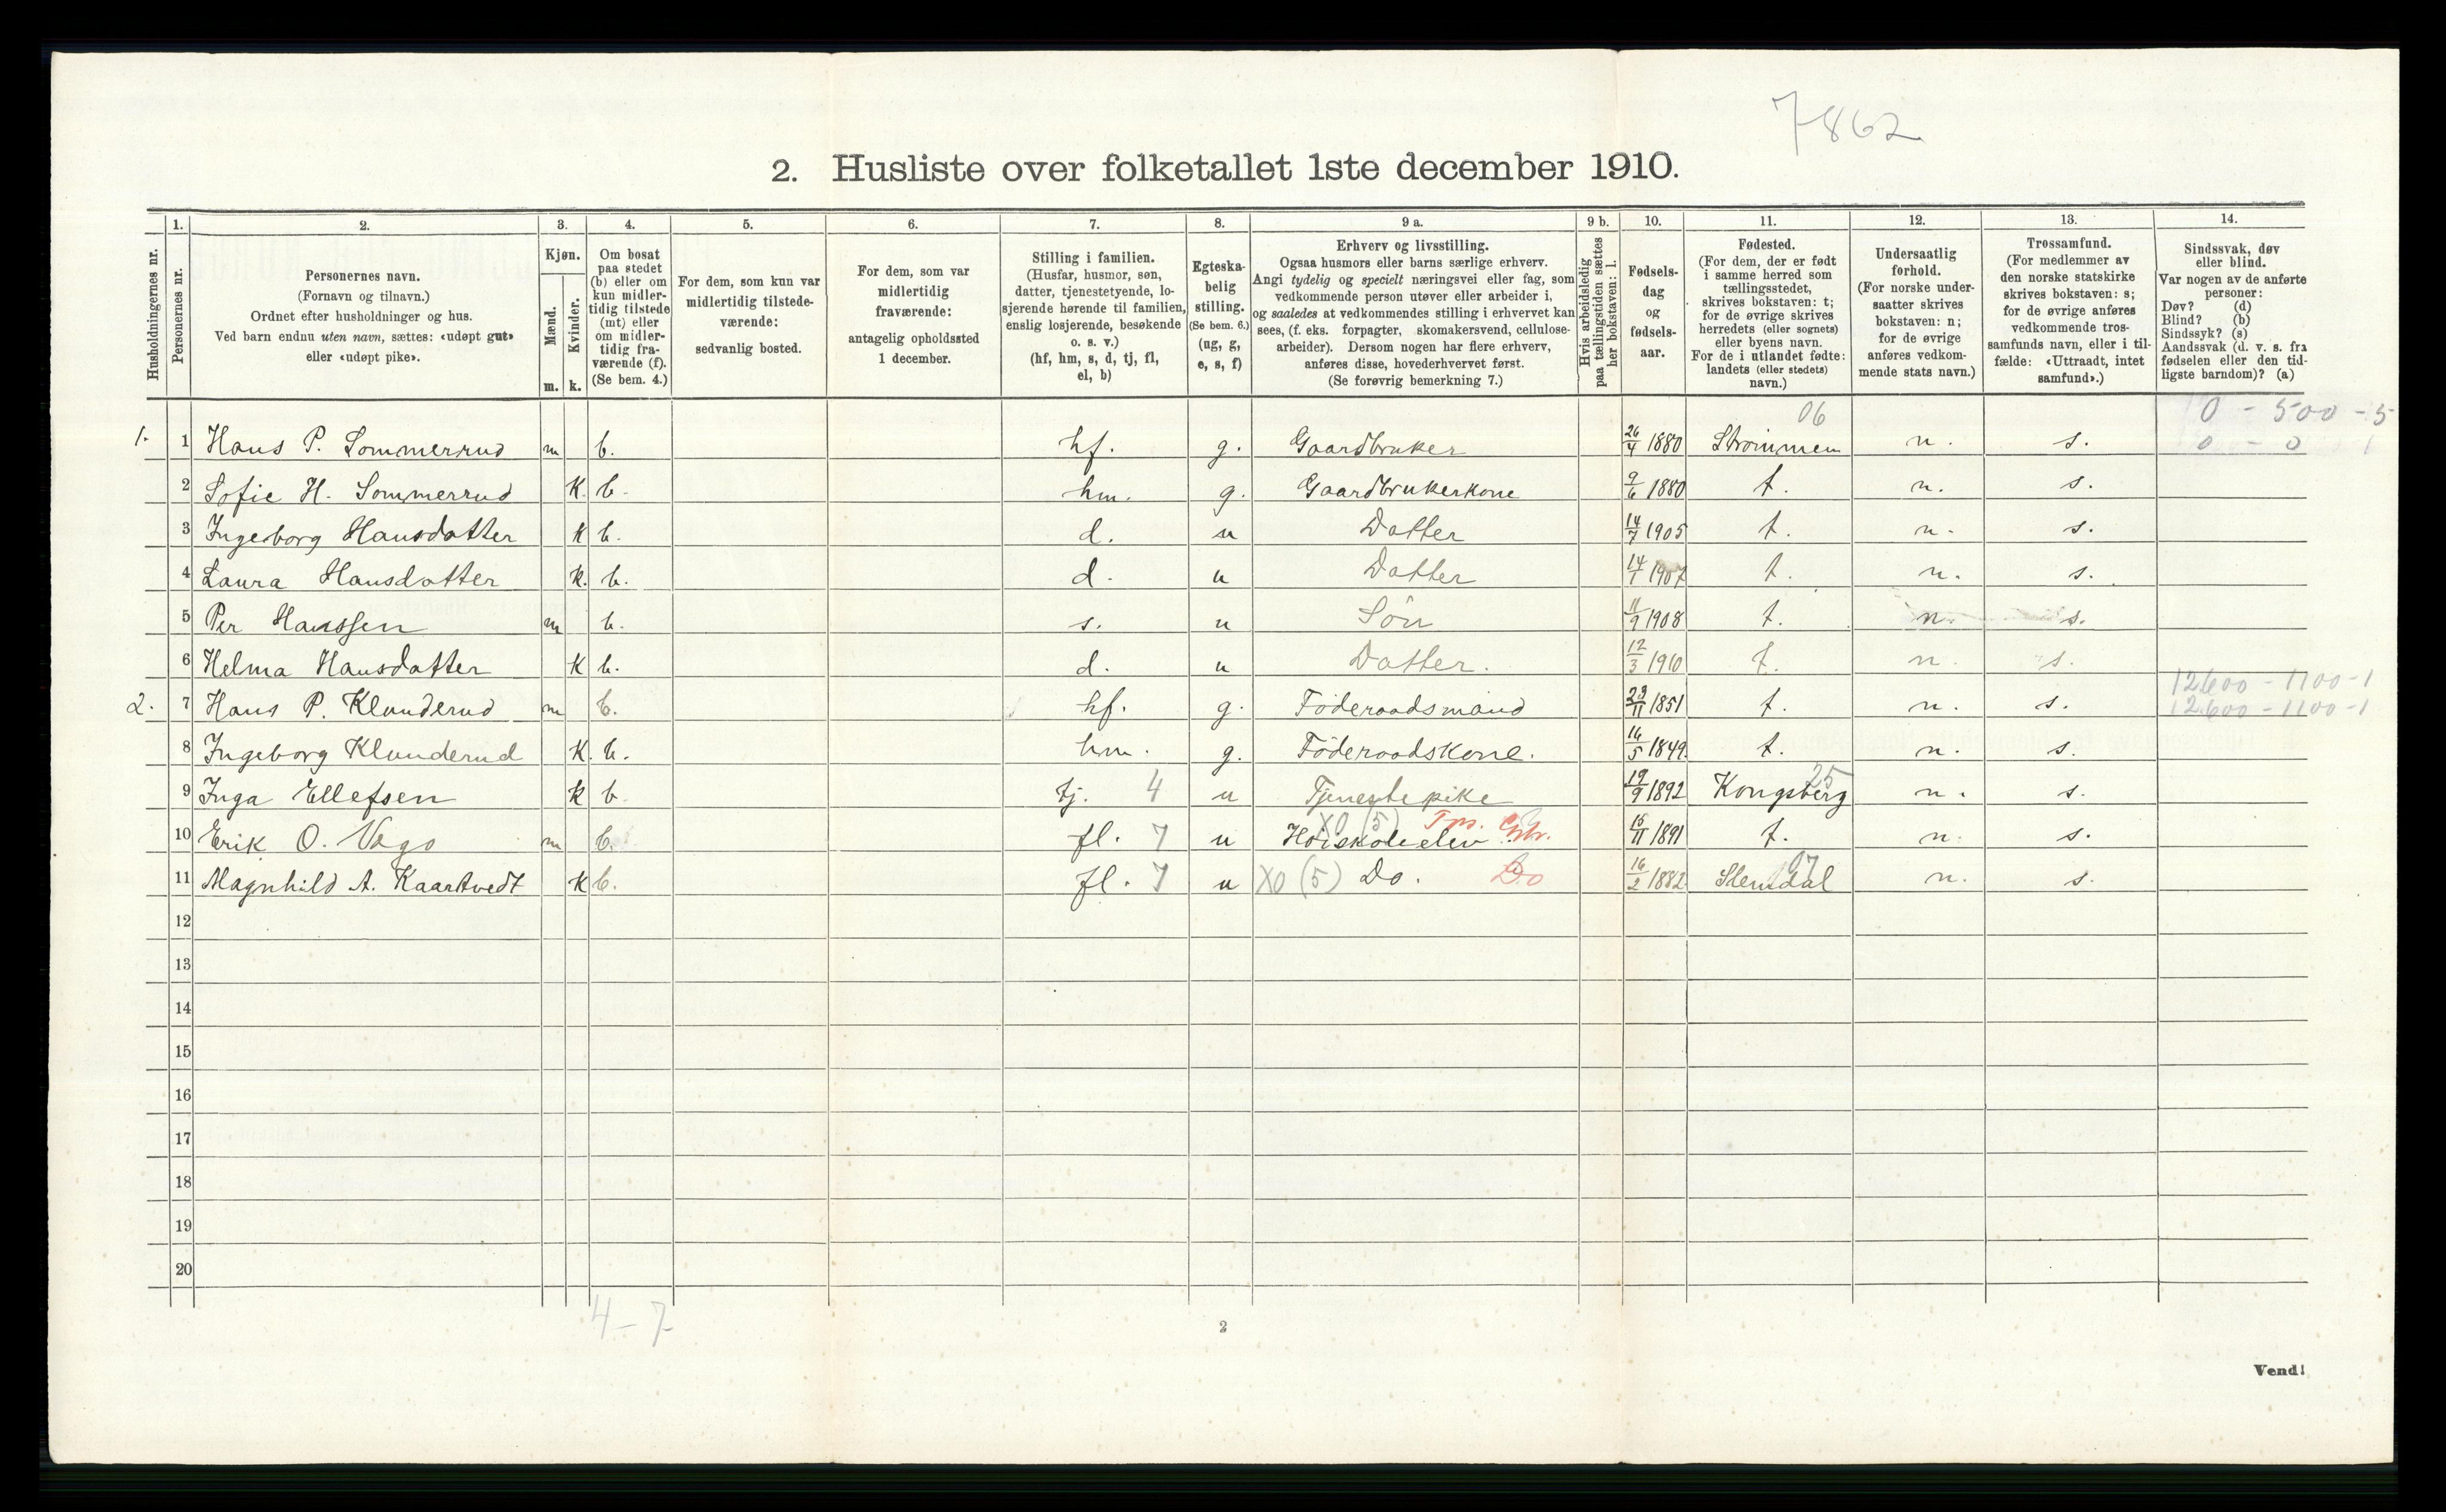 7862
2. Husliste over folketallet 1ste december 1910.
Husholdningernes nr.
1.
Personernes nr.
2.
Personernes navn.
(Fornavn og tilnavn.)
Ordnet efter husholdninger og hus.
Ved barn endnu uten navn, sættes: «udøpt gut»
eller «udøpt pike».
3.
Kjøn.
Mænd.
m.
Kvinder.
k.
4.
Om bosat
paa stedet
(b) eller om
kun midler-
tidig tilstede
(mt) eller
om midler-
tidig fra-
værende (f).
(Se bem. 4.)
5.
For dem, som kun var
midlertidig tilstede-
værende:
sedvanlig bosted.
6.
For dem, som var
midlertidig
fraværende:
antagelig opholdssted
1 december.
7.
Stilling i familien.
(Husfar, husmor, søn,
datter, tjenestetyende, lo-
sjerende hørende til familien,
enslig losjerende, besøkende
o. s. v.)
(hf, hm, s, d, tj, fl,
el, b)
8.
Egteska-
belig
stilling.
(Se bem. 6.)
(ug, g,
e, s, f)
9 a.
Erhverv og livsstilling.
Ogsaa husmors eller barns særlige erhverv.
Angi tydelig og specielt næringsvei eller fag, som
vedkommende person utøver eller arbeider i,
og saaledes at vedkommendes stilling i erhvervet kan
sees, (f. eks. forpagter, skomakersvend, cellulose-
arbeider). Dersom nogen har flere erhverv,
anføres disse, hovederhvervet først.
(Se forøvrig bemerkning 7.)
9 b.
Hvis arbeidsledig
paa tællingstiden sættes
her bokstaven: l.
10.
Fødsels-
dag
og
fødsels-
aar.
11.
Fødested.
(For dem, der er født
i samme herred som
tællingsstedet,
skrives bokstaven: t;
for de øvrige skrives
herredets (eller sognets)
eller byens navn.
For de i utlandet fødte:
landets (eller stedets)
navn.)
12.
Undersaatlig
forhold.
(For norske under-
saatter skrives
bokstaven: n;
for de øvrige
anføres vedkom-
mende stats navn.)
13.
Trossamfund.
(For medlemmer av
den norske statskirke
skrives bokstaven: s;
for de øvrige anføres
vedkommende tros-
samfunds navn, eller i til-
fælde: «Uttraadt, intet
samfund».)
14.
Sindssvak, døv
eller blind.
Var nogen av de anførte
personer:
Døv? (d)
Blind? (b)
Sindssyk? (s)
Aandssvak (d. v. s. fra
fødselen eller den tid-
ligste barndom)? (a)
06 0 - 500 - 5
1. 1 Hans P. Sommerrud m b. hf. g. Gaardbruker 26/4 1880 Strømmen n. s. 0 - 0 1
2 Sofie H. Sommerrud K. b. hm. g. Gaardbrukerkone 9/6 1880 t. n. s.
3 Ingeborg Hansdatter K b. d. u Datter 14/7 1905 t. n. s.
4 Laura Hansdatter K. b. d. u Datter 14/1 1907 t. n. s.
5 Per Hanssen m b. s. u Sön 11/9 1908 t. n. s.
6 Helma Hansdatter K b. d. u Datter. 12/3 1910 t. n. s.
12600 - 1100 - 1
2. 7 Hans P. Klunderud m b. hf. g. Föderaadsmand 23/11 1851 t. n. s. 12600 - 1100 - 1
8 Ingeborg Klunderud K. b. hm. g. Föderaadskone. 16/5 1849. t. n. s.
25
9 Inga Ellefsen K b tj. 4 u Tjenestepike 19/9 1892 Kongsberg n. s.
X0 (5)
10 Erik O. Vago m b. fl. 7 u Höiskoleelev 15/11 1891 t. n. s.
07
11 Magnhild A. Kaartvedt K b. fl. 7 u X0 (5) Do. Do 16/2 1882 n. s.
12
13
14
15
16
17
18
19
20
4 - 7
2
Vend!